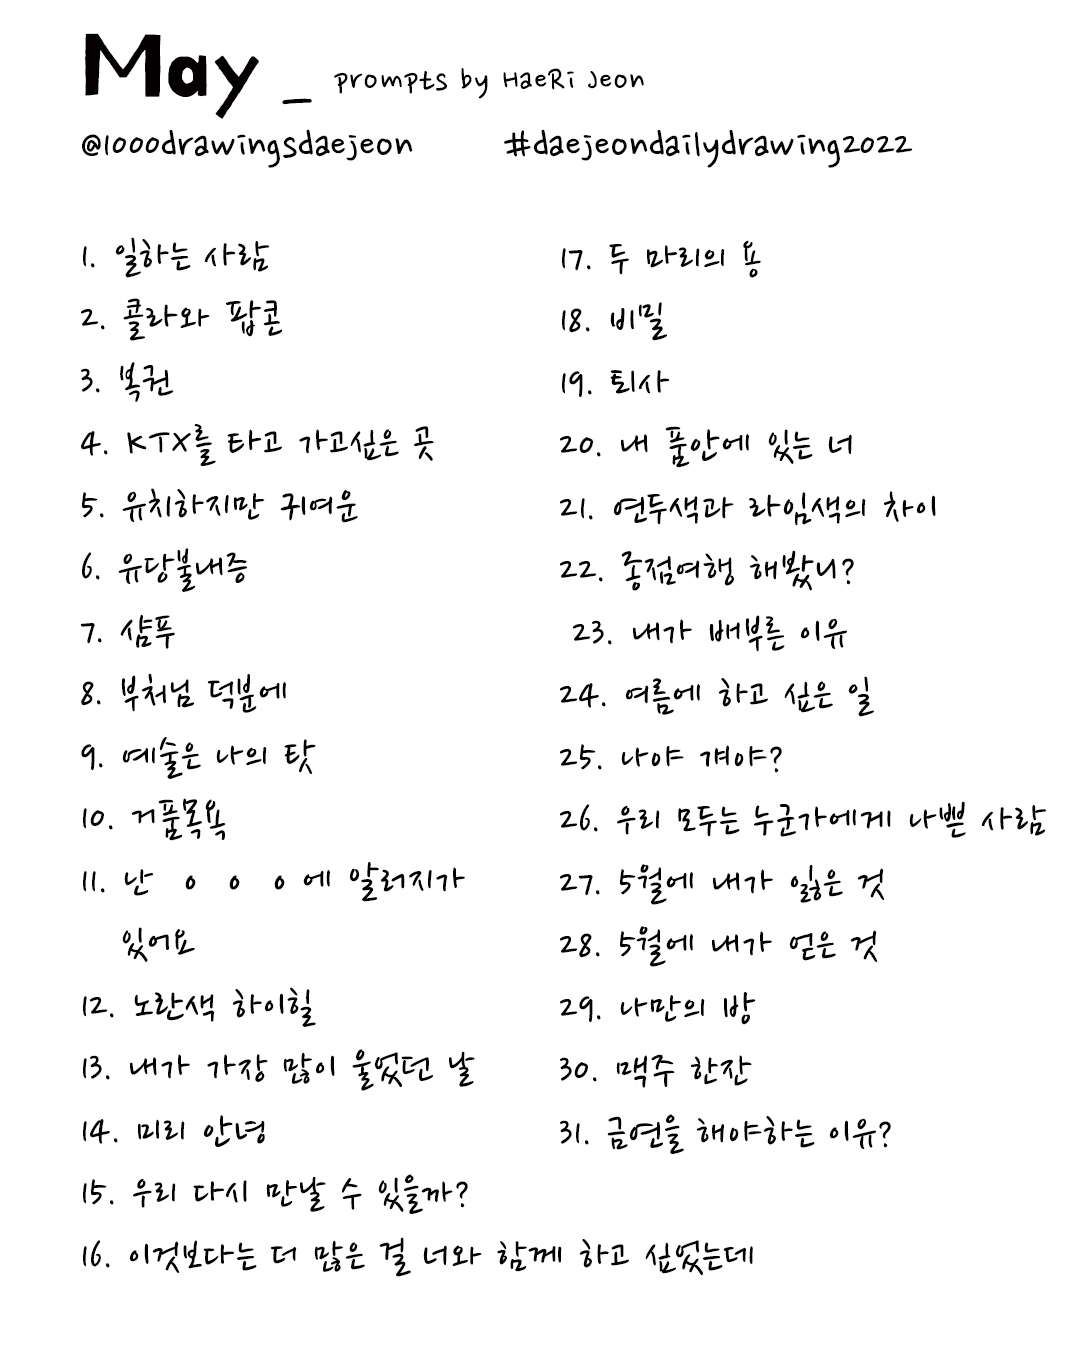 May _ prompts by HaeRi Jeon
@1000drawingsdaejeon #daejeondailydrawing2022
1. 일하는 사람
2. 콜라와 팝콘
3. 복권
4. KTX를 타고 가고싶은 곳
5. 유치하지만 귀여운
6. 유당불내증
7. 샴푸
8. 부처님 덕분에
9. 예술은 나의 탓
10. 거품목욕
11. 난 o o o 에 알러지가
있어요
12. 노란색 하이힐
13. 내가 가장 많이 울었던 날
14. 미리 안녕
15. 우리 다시 만날 수 있을까?
16. 이것보다는 더 많은 걸 너와 함께 하고 싶었는데
17. 두 마리의 용
18. 비밀
19. 퇴사
20. 내 품안에 있는 너
21. 연두색과 라임색의 차이
22. 종점여행 해봤니?
23. 내가 배부른 이유
24. 여름에 하고 싶은 일
25. 나야 걔야?
26. 우리 모두는 누군가에게 나쁜 사람
27. 5월에 내가 잃은 것
28. 5월에 내가 얻은 것
29. 나만의 방
30. 맥주 한잔
31. 금연을 해야하는 이유?